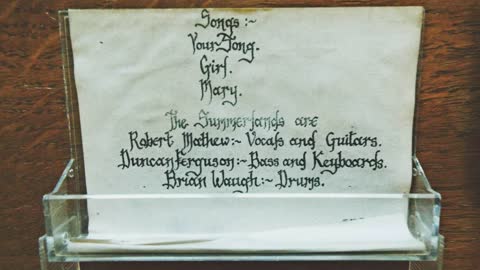 Songs:~
Your Song.
Girl.
Mary.
The Summerlands are
Robert Mathew:~ Vocals and Guitars.
Duncan Ferguson:~ Bass and Keyboards.
Brian Waugh:~ Drums.